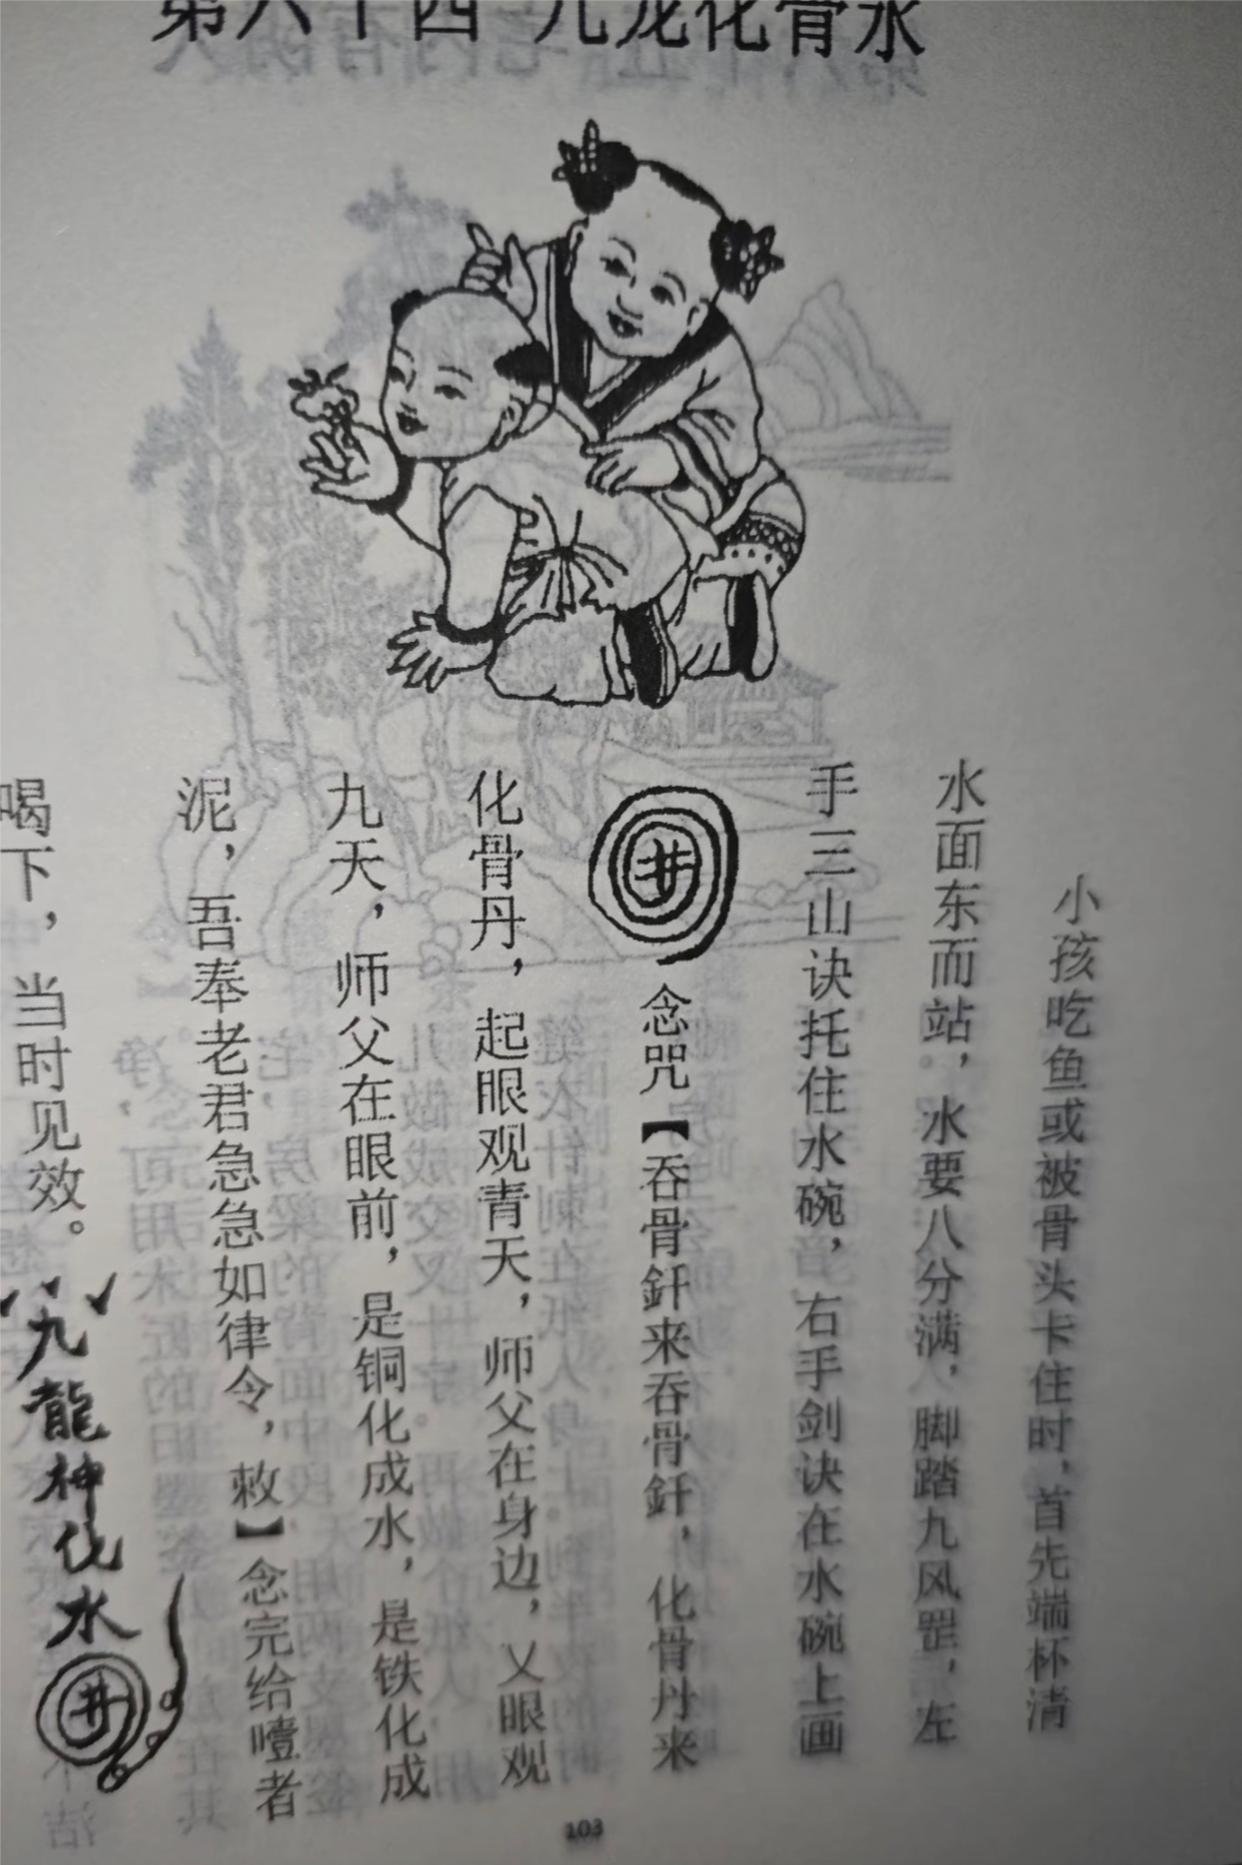 第六十四 九龙化骨水
小孩吃鱼或被骨头卡住时，首先端杯清
水面东而站，水要八分满，脚踏九风罡，左
手三山诀托住水碗，右手剑诀在水碗上画
井 念咒【吞骨釬来吞骨釬，化骨丹来
化骨丹，起眼观青天，师父在身边，乂眼观
九天，师父在眼前，是铜化成水，是铁化成
泥，吾奉老君急急如律令，敕】念完给噎者
喝下，当时见效。
九龍神化水
井
103